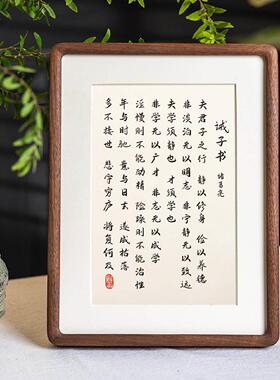 诫子书
诸葛亮
夫君子之行 静以修身 俭以养德
非淡泊无以明志 非宁静无以致远
夫学须静也 才须学也
非学无以广才 非志无以成学
淫慢则不能励精 险躁则不能治性
年与时驰 意与日去 遂成枯落
多不接世 悲守穷庐 将复何及